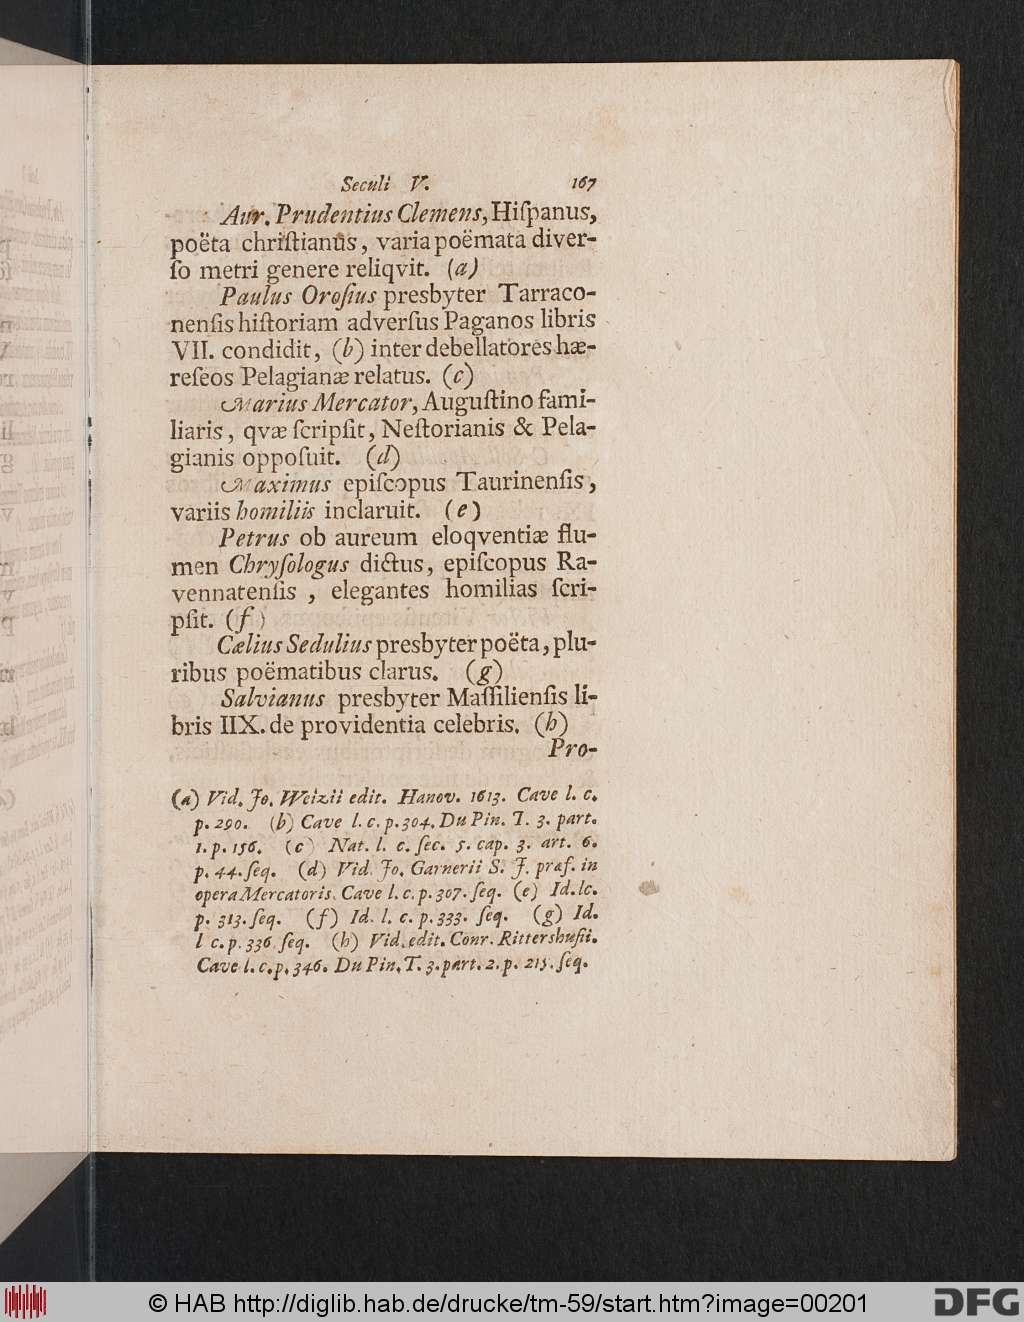 Seculi V. 167
Aur. Prudentius Clemens, Hiſpanus,
poëta chriſtianus, varia poëmata diver-
ſo metri genere reliqvit. (a)
Paulus Oroſius presbyter Tarraco-
nenſis hiſtoriam adverſus Paganos libris
VII. condidit, (b) inter debellatores hæ-
reſeos Pelagianæ relatus. (c)
Marius Mercator, Auguſtino fami-
liaris, qvæ ſcripſit, Neſtorianis & Pela-
gianis oppoſuit. (d)
Maximus epiſcopus Taurinenſis,
variis homiliis inclaruit. (e)
Petrus ob aureum eloqventiæ flu-
men Chryſologus dictus, epiſcopus Ra-
vennatenſis, elegantes homilias ſcri-
pſit. (f)
Cælius Sedulius presbyter poëta, plu-
ribus poëmatibus clarus. (g)
Salvianus presbyter Maſſilienſis li-
bris IIX. de providentia celebris. (h)
Pro-
(a) Vid. Jo. Weizii edit. Hanov. 1613. Cave l. c.
p. 290. (b) Cave l. c. p. 304. Du Pin. T. 3. part.
1. p. 156. (c) Nat. l. c. ſec. 5. cap. 3. art. 6.
p. 44. ſeq. (d) Vid. Jo. Garnerii S. J. præf. in
opera Mercatoris. Cave l. c. p. 307. ſeq. (e) Id. lc.
p. 313. ſeq. (f) Id. l. c. p. 333. ſeq. (g) Id.
l c. p. 336 ſeq. (h) Vid. edit. Conr. Rittershuſii.
Cave l. c. p. 346. Du Pin. T. 3. part. 2. p. 215. ſeq.
© HAB http://diglib.hab.de/drucke/tm-59/start.htm?image=00201
DFG